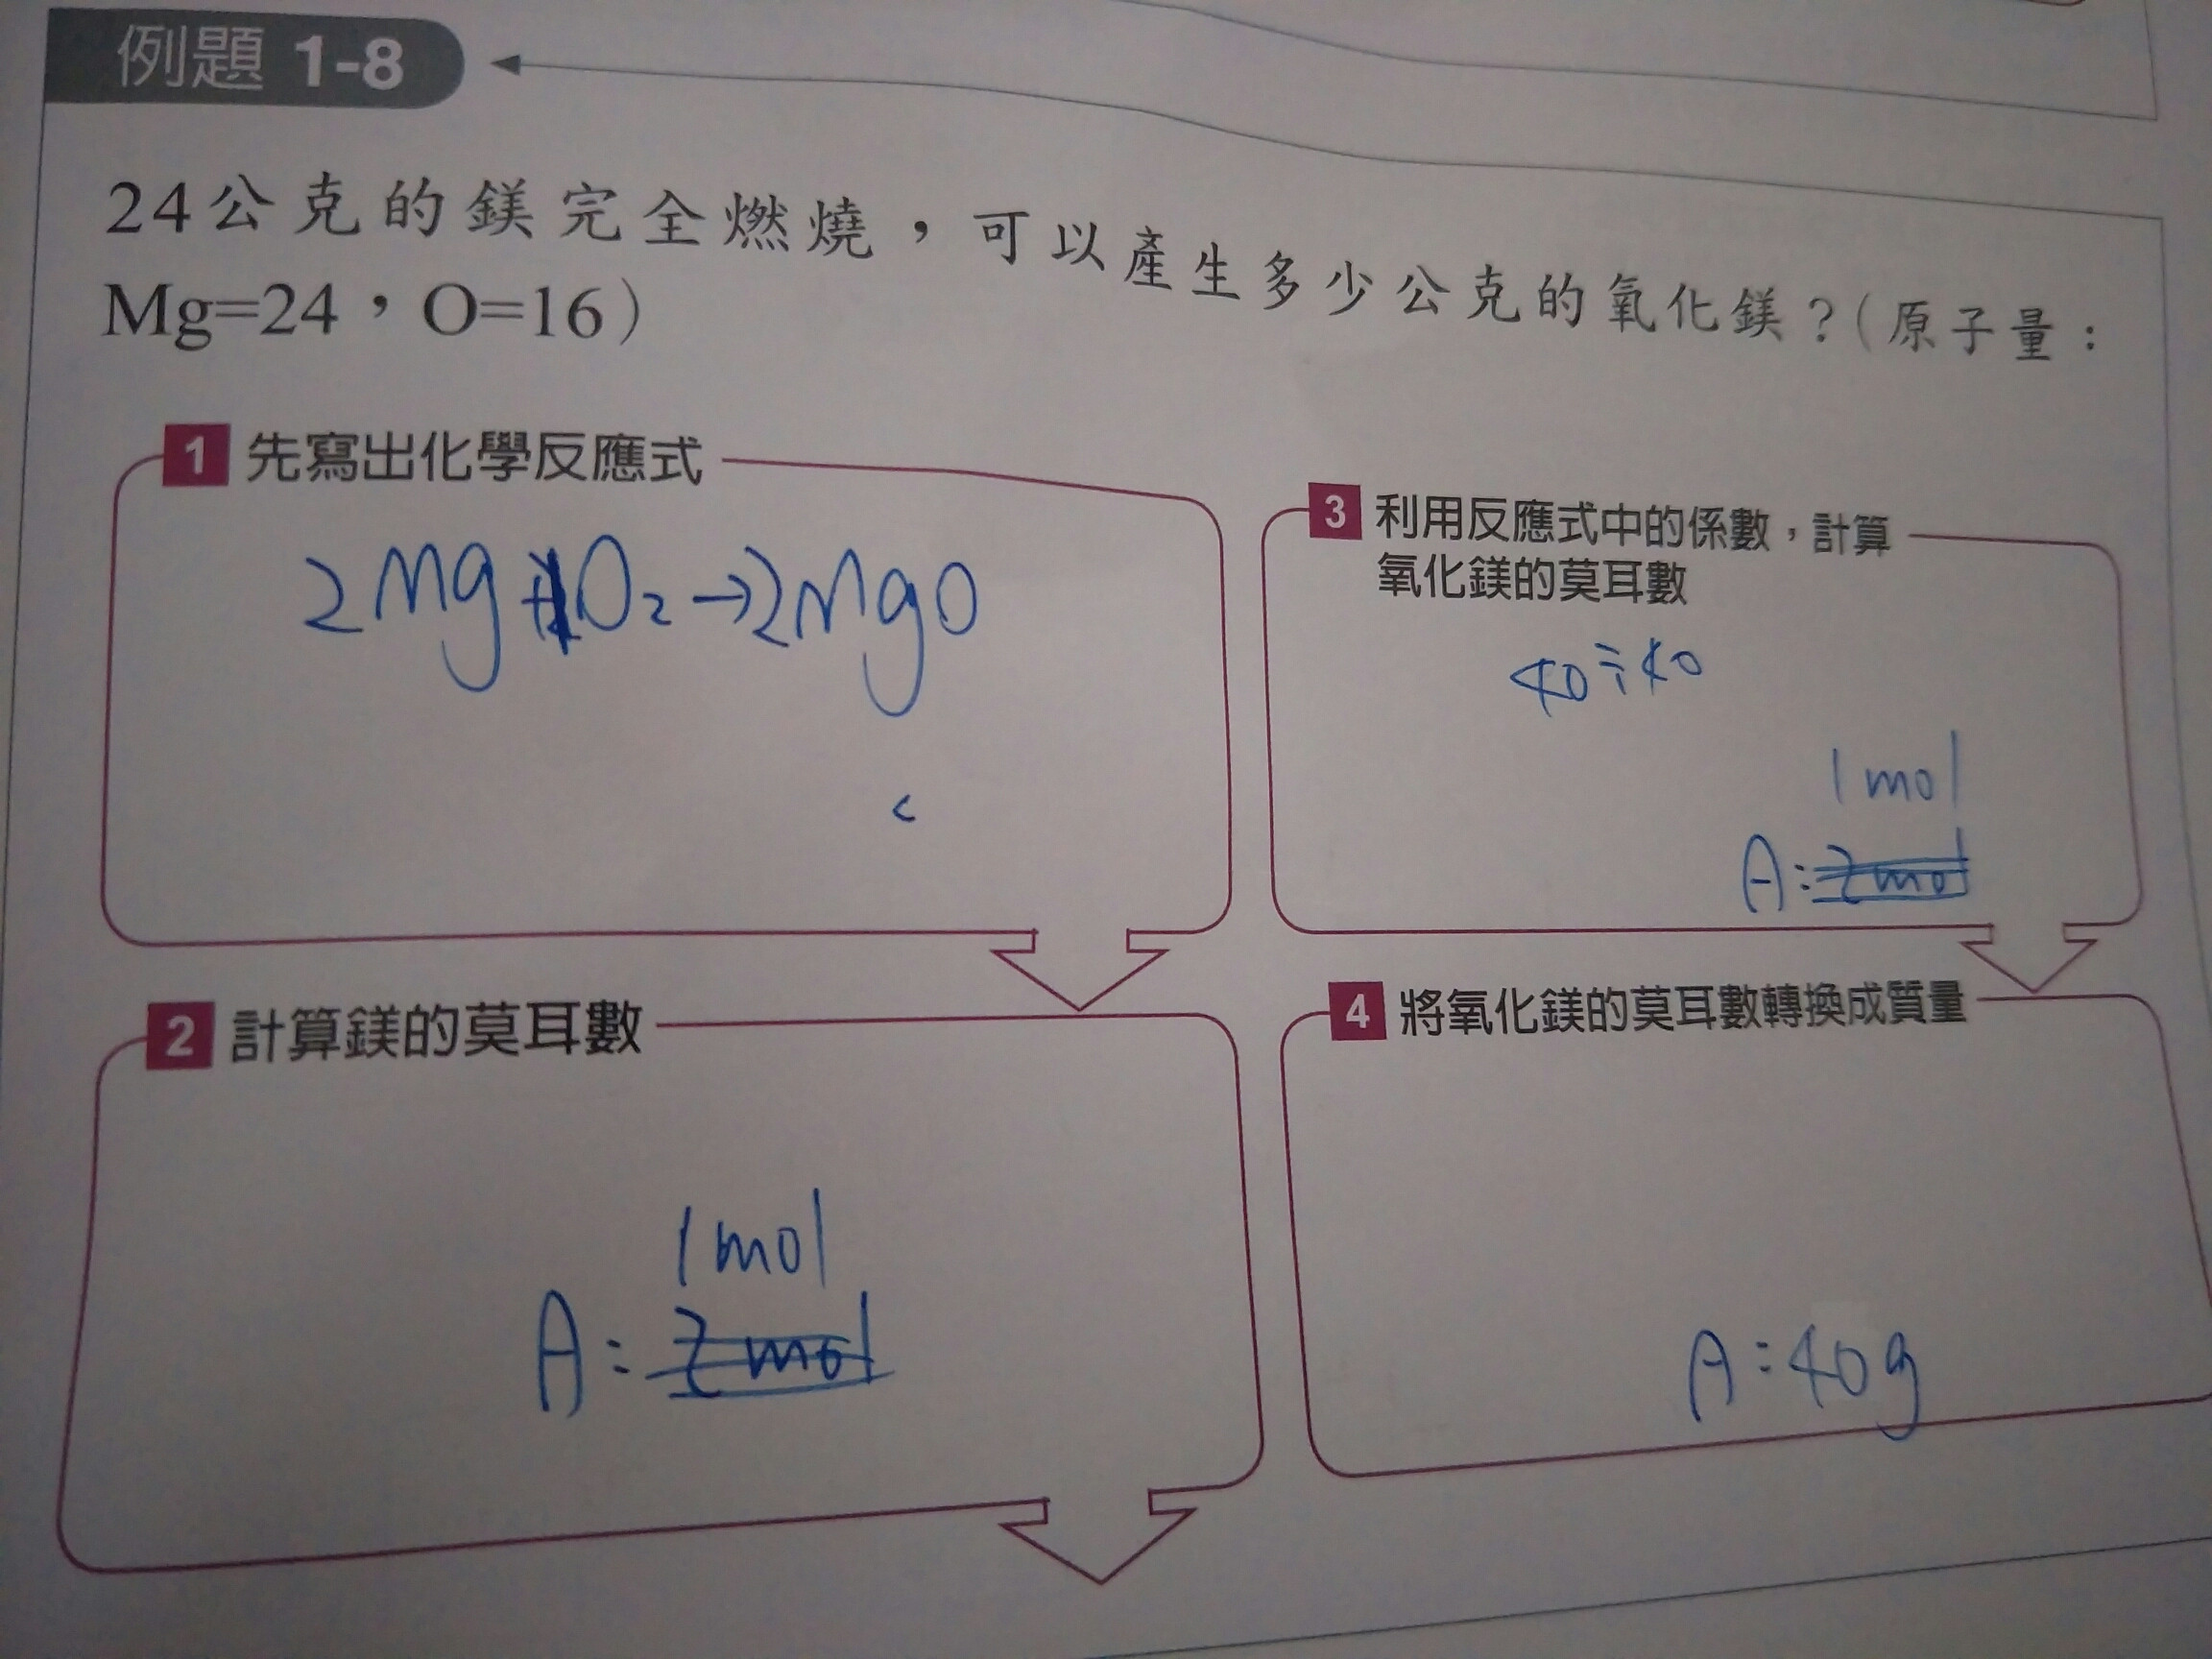 例題 1-8
24公克的鎂完全燃燒，可以產生多少公克的氧化鎂？（原子量：
Mg=24，O=16）
1 先寫出化學反應式
2Mg+O₂→2MgO
2 計算鎂的莫耳數
1mol
A: 2mol
3 利用反應式中的係數，計算
氧化鎂的莫耳數
40÷40
1mol
A: 2mol
4 將氧化鎂的莫耳數轉換成質量
A:40g